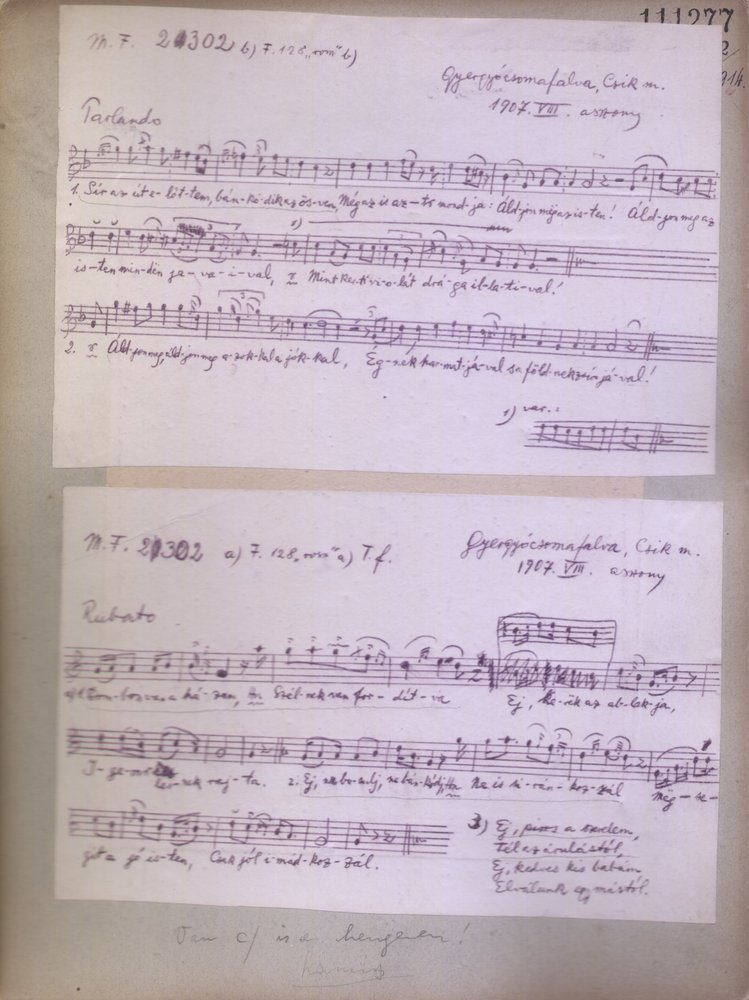 111277
2
914.
M. F. 21302 b) F. 128 „rom" b)
Gyergyócsomafalva, Csik m.
1907. VIII. asszony
Parlando
1. Sir az út e-lőt-tem, bán-kó-dik az ös-ven, Még az is az-tó mond-ja: Áld-jon még az is-ten! Áld-jon meg az
1)
is-ten min-den ja-va-i-val, Mint kerti vi-o-lát drá-ga il-la-ti-val!
2. Áld-jon meg, áld-jon meg a-zok-kal a jók-kal, Ég-nek har-mat-já-val s a föld-nek zsír-já-val!
1) var.:
M. F. 21302 a) F. 128 „rom" a) T. f.
Gyergyócsomafalva, Csik m.
1907. VIII. asszony
Rubato
Gom-bos van a há-zam, Szél-nek van for-dít-va Ej, ke-rik az ab-lak-ja,
2. Ej, ne bo-sulj, ne bán-kódj, Ne is ki-rán-koz-zál Még-se-
git a jó is-ten, Csak jól i-mád-koz-zál.
3) Ej, piros a szedem,
tél az árulástól,
Ej, kedves kis babám,
Elválunk egymástól.
Van c) is a hengeren!
hamis